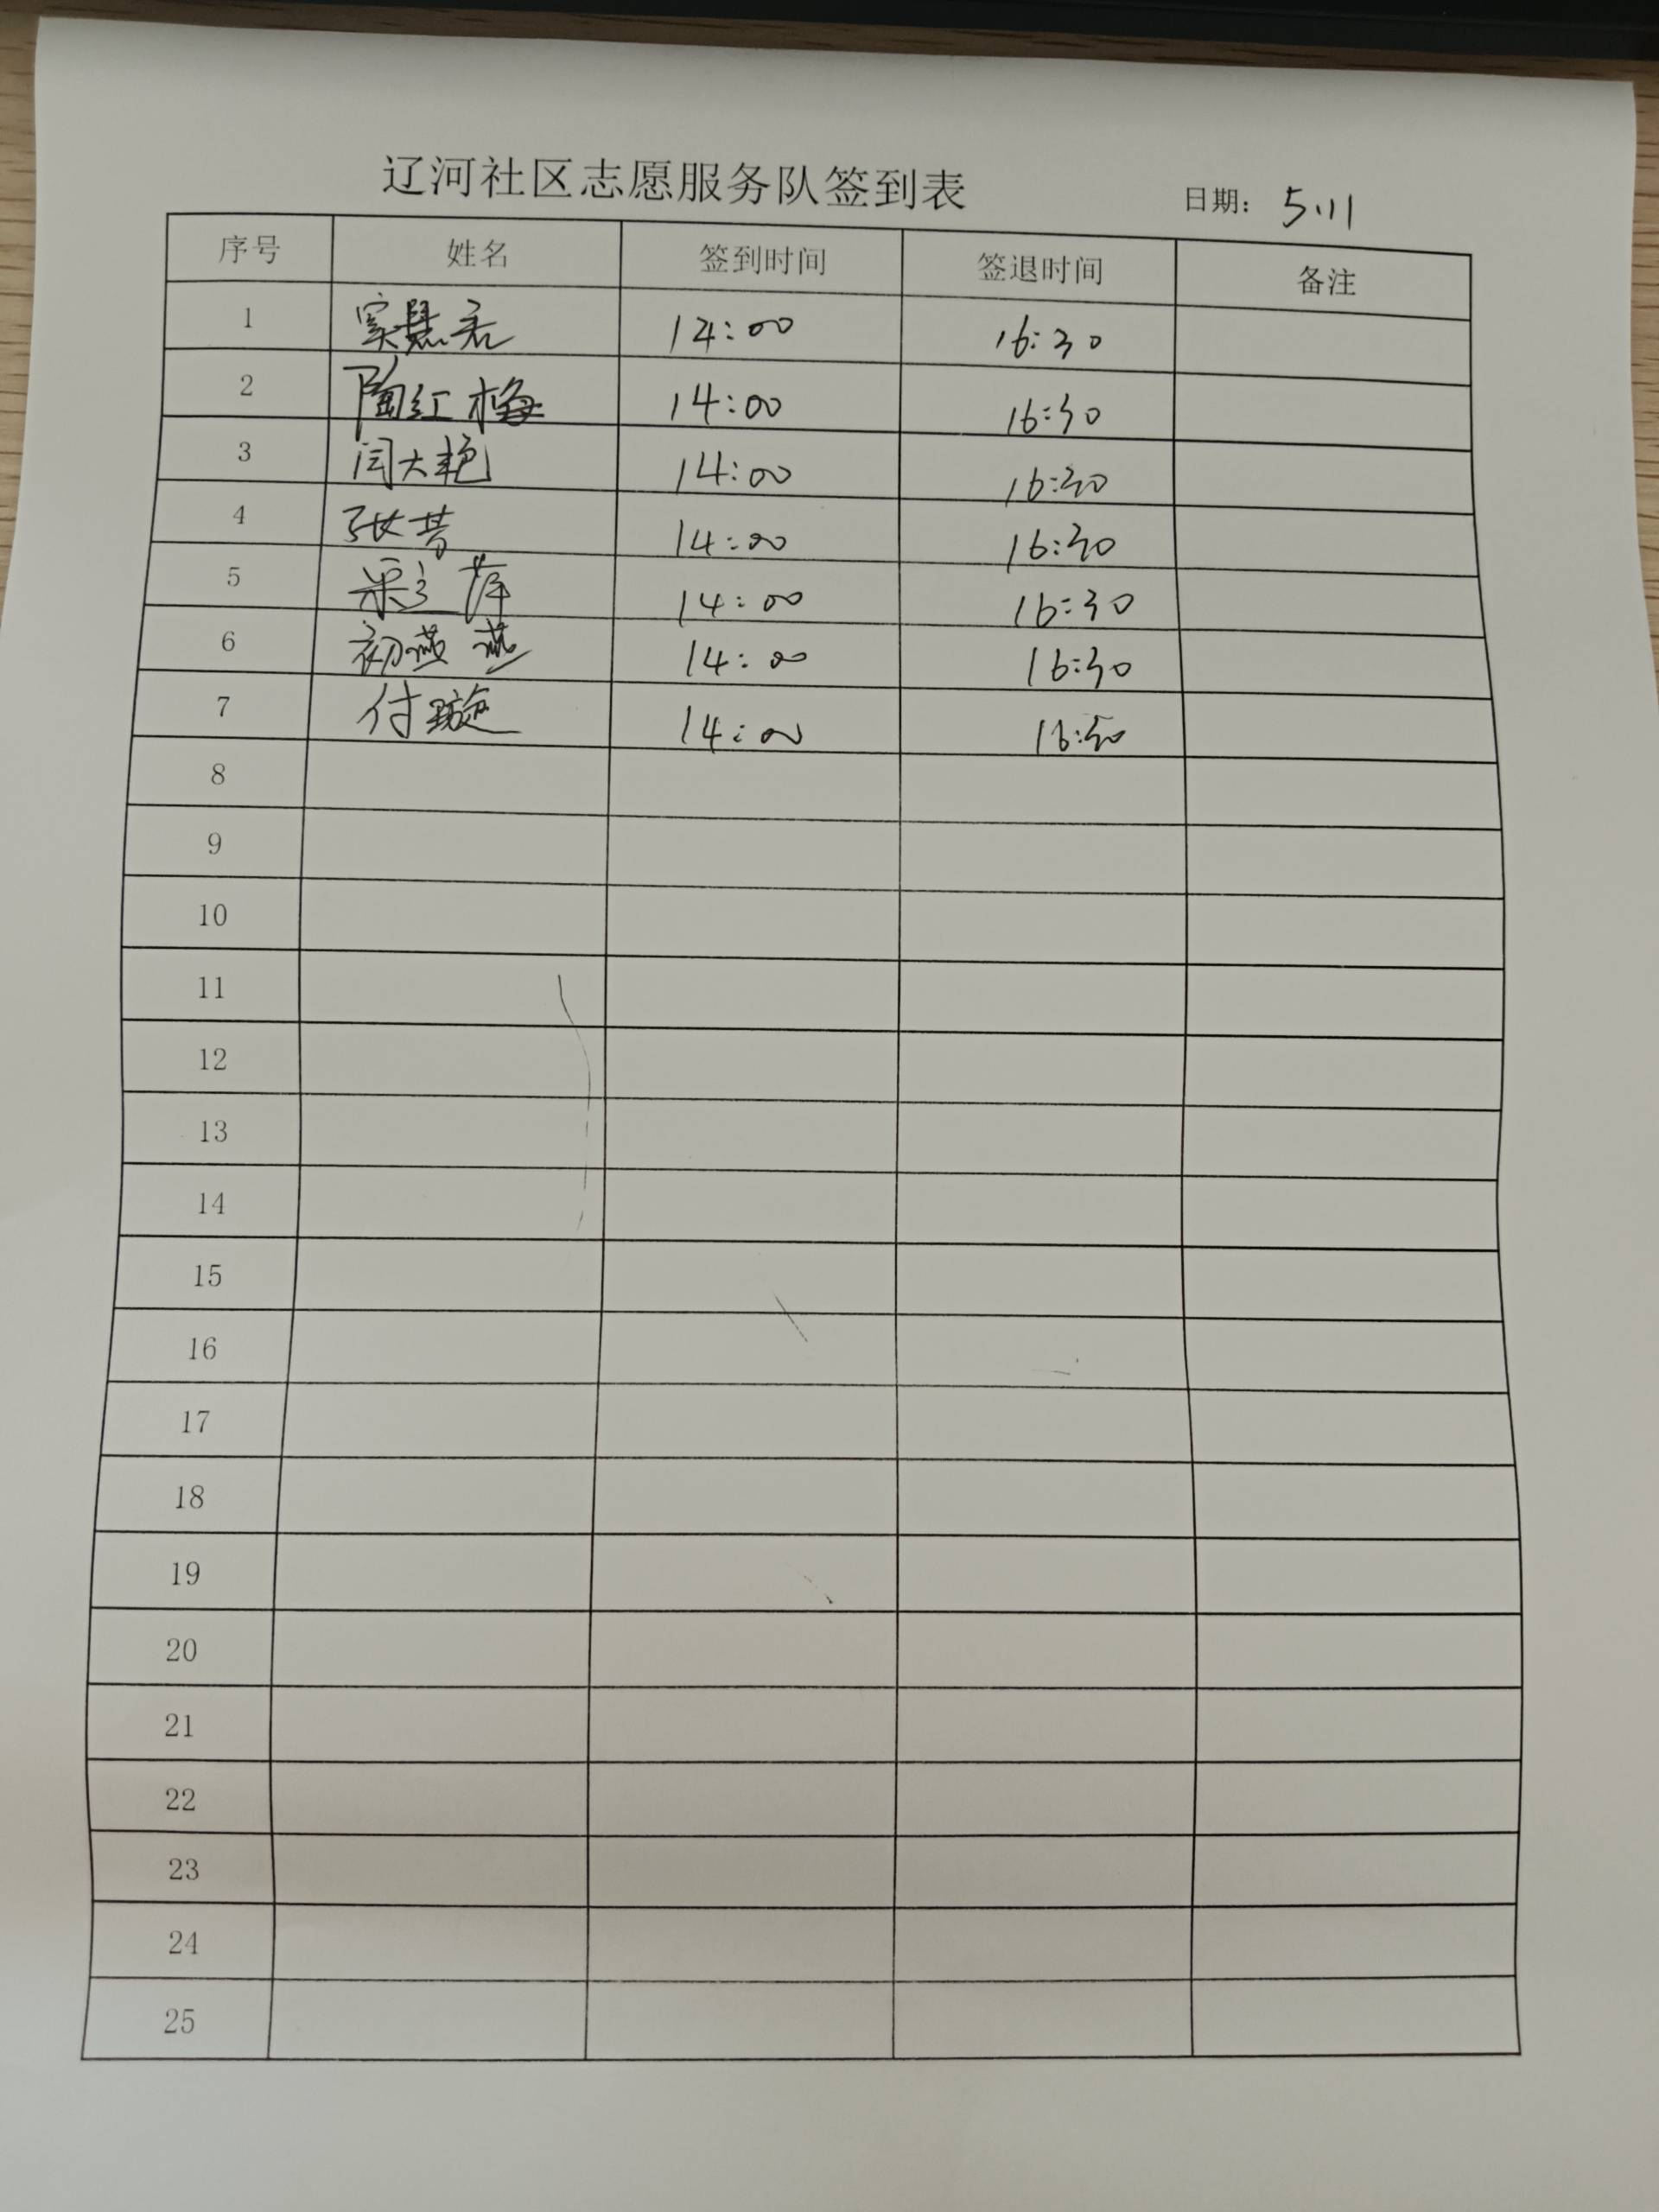 辽河社区志愿服务队签到表 日期: 5.11
序号 姓名 签到时间 签退时间 备注
1 窦慧君 14:00 16:30
2 陶红梅 14:00 16:30
3 闫大艳 14:00 16:30
4 张昔 14:00 16:30
5 萍 14:00 16:30
6 初燕燕 14:00 16:30
7 付璇 14:00 16:30
8
9
10
11
12
13
14
15
16
17
18
19
20
21
22
23
24
25